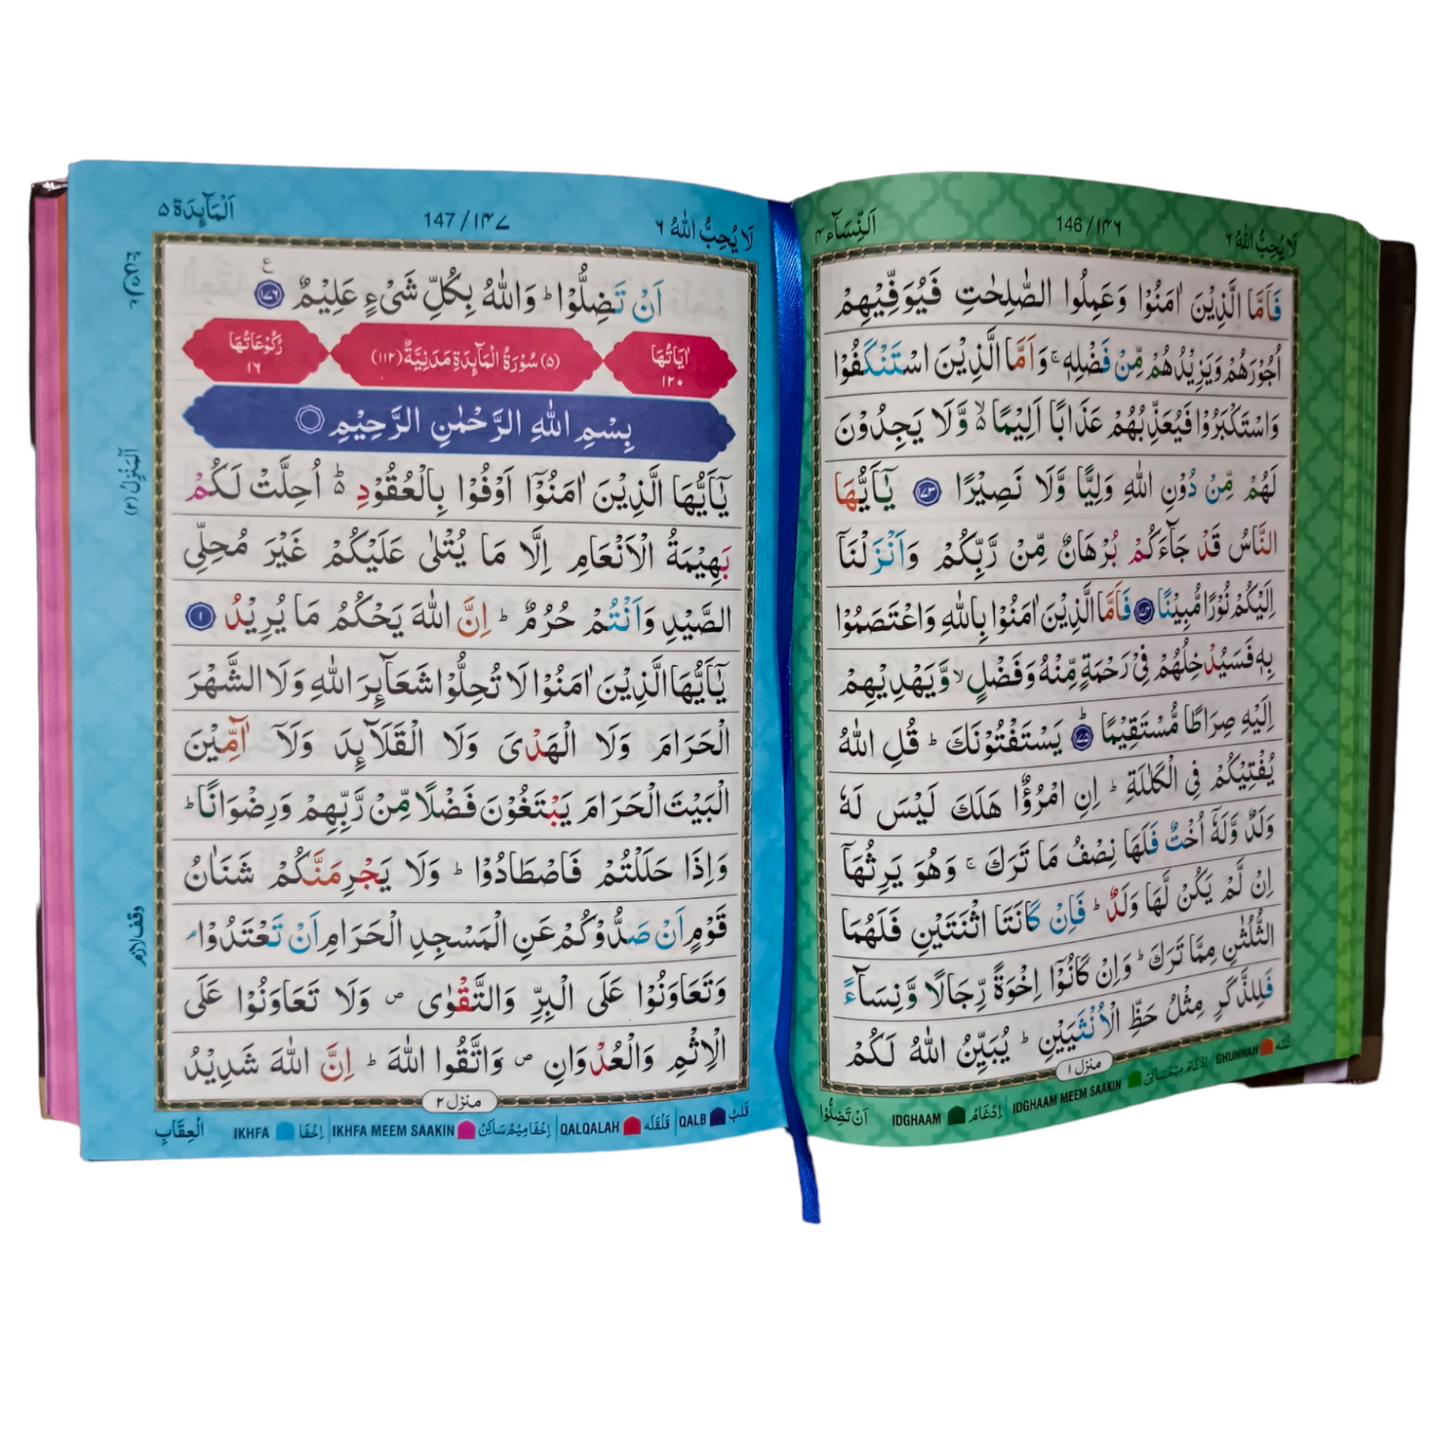 لَا يُحِبُّ اللّٰهُ ٦
146/١٤٦
اَلنِّسَآء ٤
فَاَمَّا الَّذِيْنَ اٰمَنُوْا وَعَمِلُوا الصّٰلِحٰتِ فَيُوَفِّيْهِمْ
اُجُوْرَهُمْ وَيَزِيْدُهُمْ مِّنْ فَضْلِهٖ ۚ وَاَمَّا الَّذِيْنَ اسْتَنْكَفُوْا
وَاسْتَكْبَرُوْا فَيُعَذِّبُهُمْ عَذَابًا اَلِيْمًا ۙ وَّلَا يَجِدُوْنَ
لَهُمْ مِّنْ دُوْنِ اللّٰهِ وَلِيًّا وَّلَا نَصِيْرًا ﴿١٧٣﴾ يٰۤاَيُّهَا
النَّاسُ قَدْ جَآءَكُمْ بُرْهَانٌ مِّنْ رَّبِّكُمْ وَاَنْزَلْنَاۤ
اِلَيْكُمْ نُوْرًا مُّبِيْنًا ﴿١٧٤﴾ فَاَمَّا الَّذِيْنَ اٰمَنُوْا بِاللّٰهِ وَاعْتَصَمُوْا
بِهٖ فَسَيُدْخِلُهُمْ فِيْ رَحْمَةٍ مِّنْهُ وَفَضْلٍ ۙ وَّيَهْدِيْهِمْ
اِلَيْهِ صِرَاطًا مُّسْتَقِيْمًا ﴿١٧٥﴾ يَسْتَفْتُوْنَكَ ؕ قُلِ اللّٰهُ
يُفْتِيْكُمْ فِي الْكَلٰلَةِ ؕ اِنِ امْرُؤٌا هَلَكَ لَيْسَ لَهٗ
وَلَدٌ وَّلَهٗۤ اُخْتٌ فَلَهَا نِصْفُ مَا تَرَكَ ۚ وَهُوَ يَرِثُهَاۤ
اِنْ لَّمْ يَكُنْ لَّهَا وَلَدٌ ؕ فَاِنْ كَانَتَا اثْنَتَيْنِ فَلَهُمَا
الثُّلُثٰنِ مِمَّا تَرَكَ ؕ وَاِنْ كَانُوْۤا اِخْوَةً رِّجَالًا وَّنِسَآءً
فَلِلذَّكَرِ مِثْلُ حَظِّ الْاُنْثَيَيْنِ ؕ يُبَيِّنُ اللّٰهُ لَكُمْ
منزل ١
غُنَّه GHUNNAH اِدْغَام مِيْم سَاكِنْ IDGHAAM MEEM SAAKIN اِدْغَامْ IDGHAAM
اَنْ تَضِلُّوْا
لَا يُحِبُّ اللّٰهُ ٦
147/١٤٧
اَلْمَآئِدَة ٥
اَنْ تَضِلُّوْا ؕ وَاللّٰهُ بِكُلِّ شَيْءٍ عَلِيْمٌ ﴿١٧٦﴾ ع
اٰيَاتُهَا ١٢٠
(٥) سُوْرَةُ الْمَآئِدَةِ مَدَنِيَّةٌ (١١٢)
رُكُوْعَاتُهَا ١٦
بِسْمِ اللّٰهِ الرَّحْمٰنِ الرَّحِيْمِ
يٰۤاَيُّهَا الَّذِيْنَ اٰمَنُوْۤا اَوْفُوْا بِالْعُقُوْدِ ؕ اُحِلَّتْ لَكُمْ
بَهِيْمَةُ الْاَنْعَامِ اِلَّا مَا يُتْلٰى عَلَيْكُمْ غَيْرَ مُحِلِّي
الصَّيْدِ وَاَنْتُمْ حُرُمٌ ؕ اِنَّ اللّٰهَ يَحْكُمُ مَا يُرِيْدُ ﴿١﴾
يٰۤاَيُّهَا الَّذِيْنَ اٰمَنُوْا لَا تُحِلُّوْا شَعَآئِرَ اللّٰهِ وَلَا الشَّهْرَ
الْحَرَامَ وَلَا الْهَدْيَ وَلَا الْقَلَآئِدَ وَلَاۤ آٰمِّيْنَ
الْبَيْتَ الْحَرَامَ يَبْتَغُوْنَ فَضْلًا مِّنْ رَّبِّهِمْ وَرِضْوَانًا ؕ
وَاِذَا حَلَلْتُمْ فَاصْطَادُوْا ؕ وَلَا يَجْرِمَنَّكُمْ شَنَاٰنُ
قَوْمٍ اَنْ صَدُّوْكُمْ عَنِ الْمَسْجِدِ الْحَرَامِ اَنْ تَعْتَدُوْا ۘ
وَتَعَاوَنُوْا عَلَى الْبِرِّ وَالتَّقْوٰى ۪ وَلَا تَعَاوَنُوْا عَلَى
الْاِثْمِ وَالْعُدْوَانِ ۪ وَاتَّقُوا اللّٰهَ ؕ اِنَّ اللّٰهَ شَدِيْدُ
منزل ٢
قَلْبْ QALB قَلْقَلَه QALQALAH اِخْفَا مِيْم سَاكِنْ IKHFA MEEM SAAKIN اِخْفَا IKHFA
الْعِقَابِ
اَلْمَنْزِلُ (٢)
وقف لازم